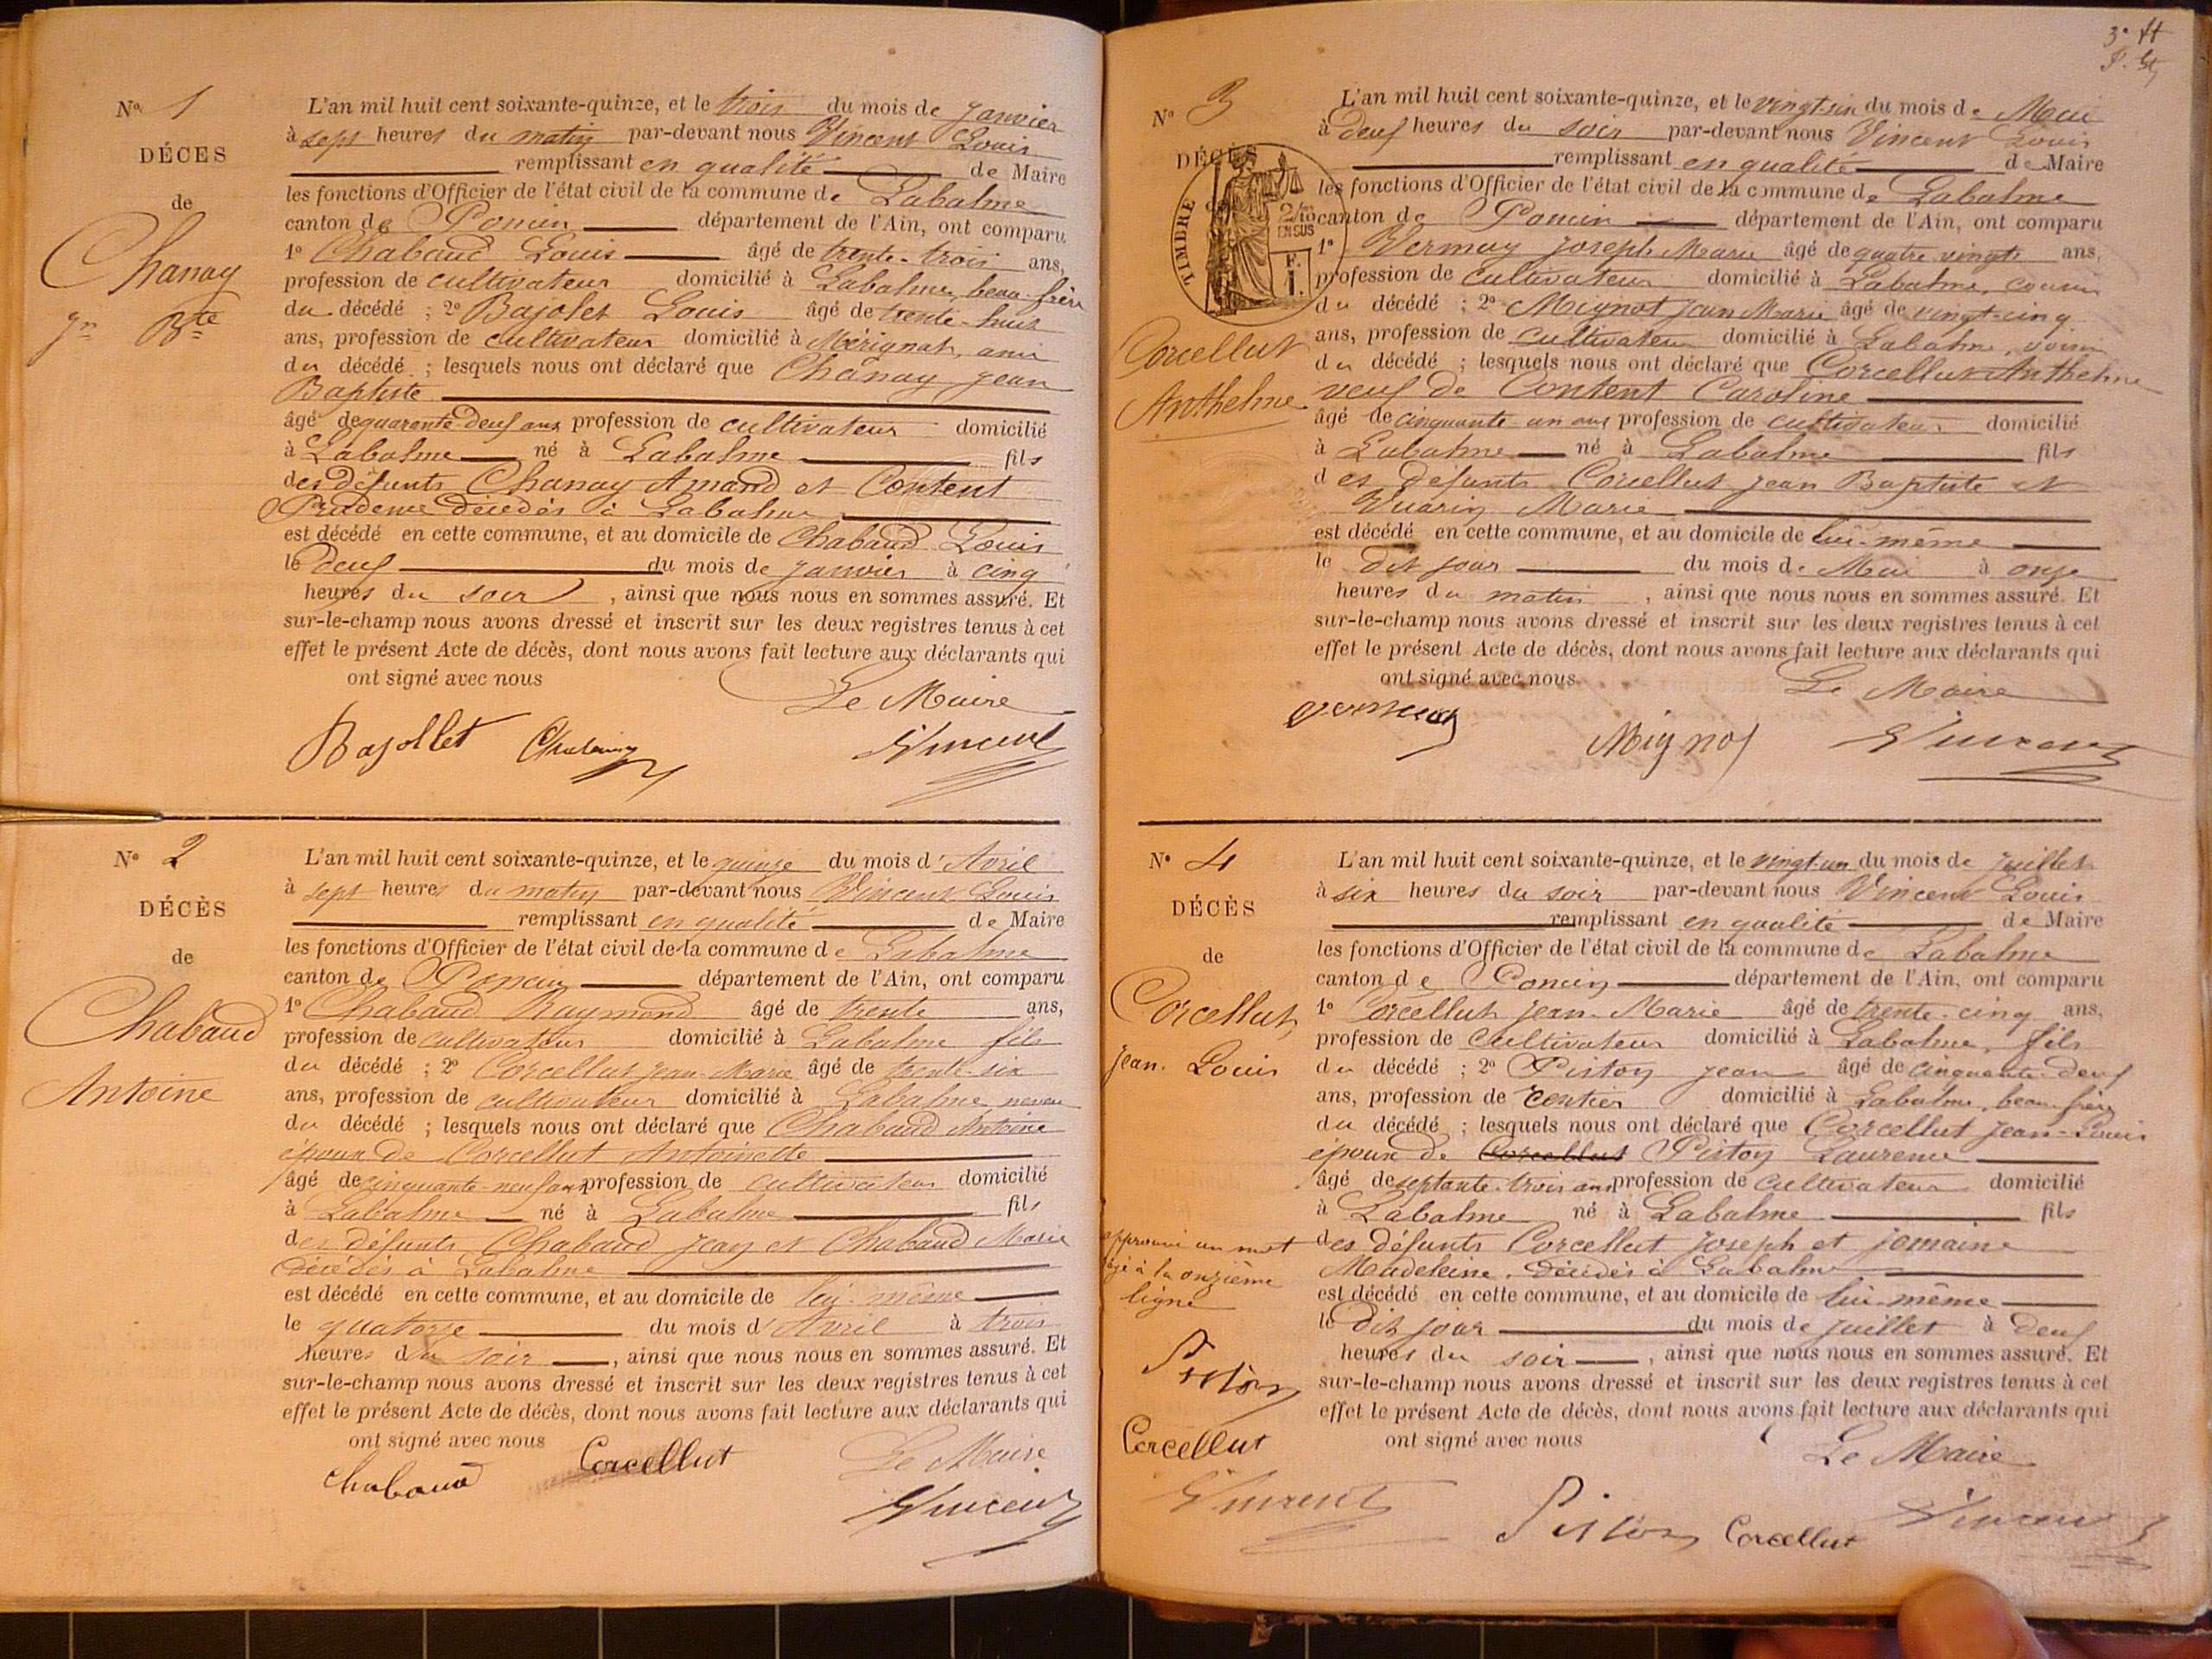 No 1
DÉCES
de
Chanay
Jn Bte
L'an mil huit cent soixante-quinze, et le trois du mois de janvier
à sept heures du matin par-devant nous Vincent Louis
remplissant en qualité de Maire
les fonctions d'Officier de l'état civil de la commune de Labalme
canton de Poncin département de l'Ain, ont comparu
1o Chabaud Louis âgé de trente-trois ans,
profession de cultivateur domicilié à Labalme, beau-frère
du décédé ; 2o Bajolet Louis âgé de trente-huit
ans, profession de cultivateur domicilié à Mérignat, ami
du décédé ; lesquels nous ont déclaré que Chanay jean
Baptiste
âgé de quarante-deux ans profession de cultivateur domicilié
à Labalme né à Labalme fils
des défunts Chanay Amand et Content
Prudence décédés à Labalme
est décédé en cette commune, et au domicile de Chabaud Louis
le deux du mois de janvier à cinq
heures du soir, ainsi que nous nous en sommes assuré. Et
sur-le-champ nous avons dressé et inscrit sur les deux registres tenus à cet
effet le présent Acte de décès, dont nous avons fait lecture aux déclarants qui
ont signé avec nous
Le Maire
Bajollet Vincent
No 2
DÉCÈS
de
Chabaud
Antoine
L'an mil huit cent soixante-quinze, et le quinze du mois d'Avril
à sept heures du matin par-devant nous Vincent Louis
remplissant en qualité de Maire
les fonctions d'Officier de l'état civil de la commune de Labalme
canton de Poncin département de l'Ain, ont comparu
1o Chabaud Raymond âgé de trente ans,
profession de cultivateur domicilié à Labalme fils
du décédé ; 2o Corcellut jean-Marie âgé de trente-six
ans, profession de cultivateur domicilié à Labalme neveu
du décédé ; lesquels nous ont déclaré que Chabaud Antoine
époux de Corcellut Antoinette
âgé de cinquante-neuf ans profession de cultivateur domicilié
à Labalme né à Labalme fils
des défunts Chabaud jean et Chabaud Marie
décédés à Labalme
est décédé en cette commune, et au domicile de lui-même
le quatorze du mois d'Avril à trois
heures du soir, ainsi que nous nous en sommes assuré. Et
sur-le-champ nous avons dressé et inscrit sur les deux registres tenus à cet
effet le présent Acte de décès, dont nous avons fait lecture aux déclarants qui
ont signé avec nous
Le Maire
Chabaud Corcellut Vincent
No 3
DÉCÈS
TIMBRE
2/10
EN SUS
F.
1.
Corcellut
Anthelme
L'an mil huit cent soixante-quinze, et le vingt-six du mois de Mai
à deux heures du soir par-devant nous Vincent Louis
remplissant en qualité de Maire
les fonctions d'Officier de l'état civil de la commune de Labalme
canton de Poncin département de l'Ain, ont comparu
1o Vermay joseph Marie âgé de quatre-vingts ans,
profession de cultivateur domicilié à Labalme, cousin
du décédé ; 2o Mignot jean Marie âgé de vingt-cinq
ans, profession de cultivateur domicilié à Labalme, voisin
du décédé ; lesquels nous ont déclaré que Corcellut Anthelme
veuf de Content Caroline
âgé de cinquante-un ans profession de cultivateur domicilié
à Labalme né à Labalme fils
des défunts Corcellut jean Baptiste et
Vuarin Marie
est décédé en cette commune, et au domicile de lui-même
le dit jour du mois de Mai à onze
heures du matin, ainsi que nous nous en sommes assuré. Et
sur-le-champ nous avons dressé et inscrit sur les deux registres tenus à cet
effet le présent Acte de décès, dont nous avons fait lecture aux déclarants qui
ont signé avec nous
Le Maire
Mignot Vincent
No 4
DÉCÈS
de
Corcellut
jean-Louis
L'an mil huit cent soixante-quinze, et le vingt-un du mois de juillet
à six heures du soir par-devant nous Vincent Louis
remplissant en qualité de Maire
les fonctions d'Officier de l'état civil de la commune de Labalme
canton de Poncin département de l'Ain, ont comparu
1o Corcellut jean-Marie âgé de trente-cinq ans,
profession de cultivateur domicilié à Labalme, fils
du décédé ; 2o Piston jean âgé de cinquante-deux
ans, profession de rentier domicilié à Labalme, beau-frère
du décédé ; lesquels nous ont déclaré que Corcellut jean-Louis
époux de Corcellut Piston Laurence
âgé de septante-trois ans profession de cultivateur domicilié
à Labalme né à Labalme fils
des défunts Corcellut joseph et jomaine
Madeleine, décédés à Labalme
est décédé en cette commune, et au domicile de lui-même
le dit jour du mois de juillet à deux
heures du soir, ainsi que nous nous en sommes assuré. Et
sur-le-champ nous avons dressé et inscrit sur les deux registres tenus à cet
effet le présent Acte de décès, dont nous avons fait lecture aux déclarants qui
ont signé avec nous
Le Maire
approuvé un mot
à la onzième
ligne
Piston
Corcellut
Vincent
Piston Corcellut Vincent